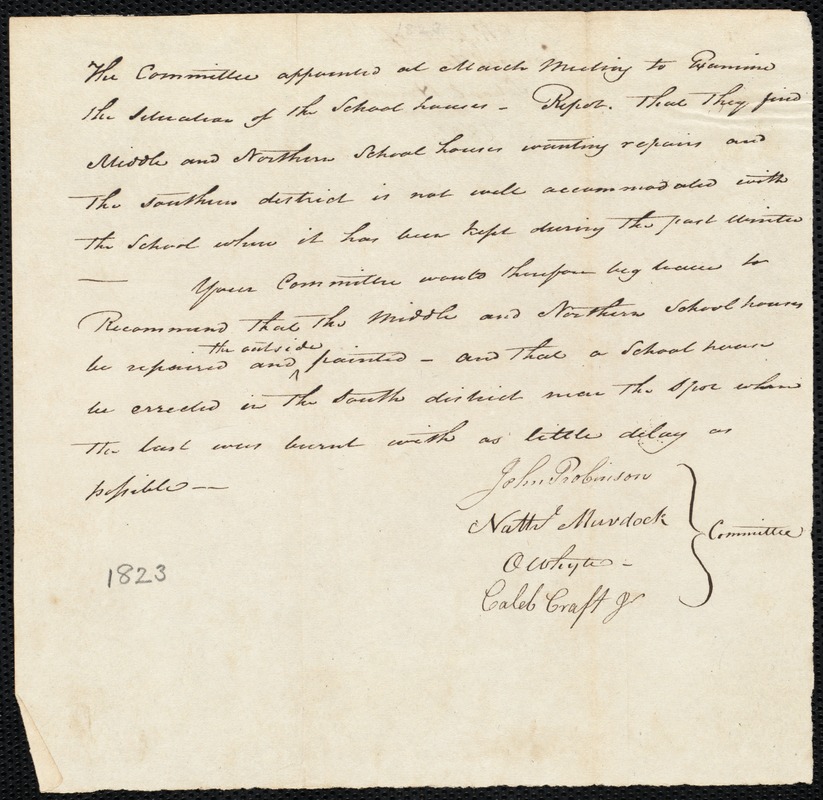 The Committee appointed at March Meeting to Examine
the Situation of the School houses - Repot. That they find
Middle and Northern School houses wanting repairs and
the Southern district is not well accommodated with
the School where it has been kept during the past Winter
— Your Committee would therefore beg leave to
Recommend that the Middle and Northern School houses
the outside
be repaired and ^ painted - and that a School house
be errected in the South district near the Spot where
the last was burnt with as little delay as
possible —
John Robinson
Nathl Murdock
O Whyte -
Committee
Caleb Craft Jr
1823